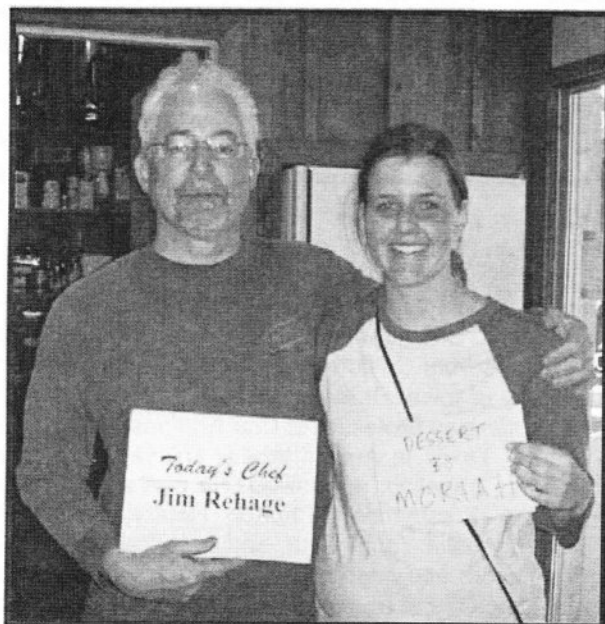 Today's Chef
Jim Rehage
DESSERT
BY
MORIAH